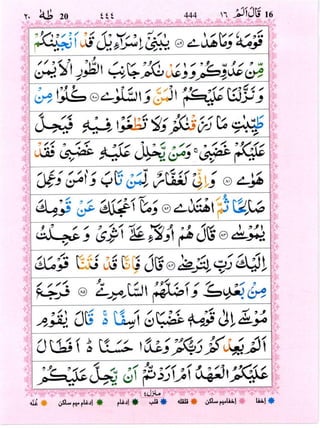 ٢٠ طٰهٰ 20 ٤٤٤ 444 قَالَ اَلَمْ ١٦ 16
قَوْمَهٗ وَمَا هَدٰى ﴿۷۹﴾ يٰبَنِىْۤ اِسْرَآءِيْلَ قَدْ اَنْجَيْنٰكُمْ
مِّنْ عَدُوِّكُمْ وَوٰعَدْنٰكُمْ جَانِبَ الطُّوْرِ الْاَيْمَنَ
وَنَزَّلْنَا عَلَيْكُمُ الْمَنَّ وَالسَّلْوٰى ﴿۸۰﴾ كُلُوْا مِنْ
طَيِّبٰتِ مَا رَزَقْنٰكُمْ وَلَا تَطْغَوْا فِيْهِ فَيَحِلَّ
عَلَيْكُمْ غَضَبِىْ ۚ وَمَنْ يَّحْلِلْ عَلَيْهِ غَضَبِىْ فَقَدْ
هَوٰى ﴿۸۱﴾ وَاِنِّىْ لَغَفَّارٌ لِّمَنْ تَابَ وَاٰمَنَ وَعَمِلَ
صَالِحًا ثُمَّ اهْتَدٰى ﴿۸۲﴾ وَمَاۤ اَعْجَلَكَ عَنْ قَوْمِكَ
يٰمُوْسٰى ﴿۸۳﴾ قَالَ هُمْ اُولَآءِ عَلٰٓى اَثَرِىْ وَعَجِلْتُ
اِلَيْكَ رَبِّ لِتَرْضٰى ﴿۸۴﴾ قَالَ فَاِنَّا قَدْ فَتَنَّا قَوْمَكَ
مِنْۢ بَعْدِكَ وَاَضَلَّهُمُ السَّامِرِىُّ ﴿۸۵﴾ فَرَجَعَ
مُوْسٰۤى اِلٰى قَوْمِهٖ غَضْبَانَ اَسِفًا ۚ قَالَ يٰقَوْمِ
اَلَمْ يَعِدْكُمْ رَبُّكُمْ وَعْدًا حَسَنًا ؕ اَفَطَالَ
عَلَيْكُمُ الْعَهْدُ اَمْ اَرَدْتُّمْ اَنْ يَّحِلَّ عَلَيْكُمْ
منزل ٤
اخفا اخفا میم ساکن قلقله قلب ادغام ادغام میم ساکن غنّه